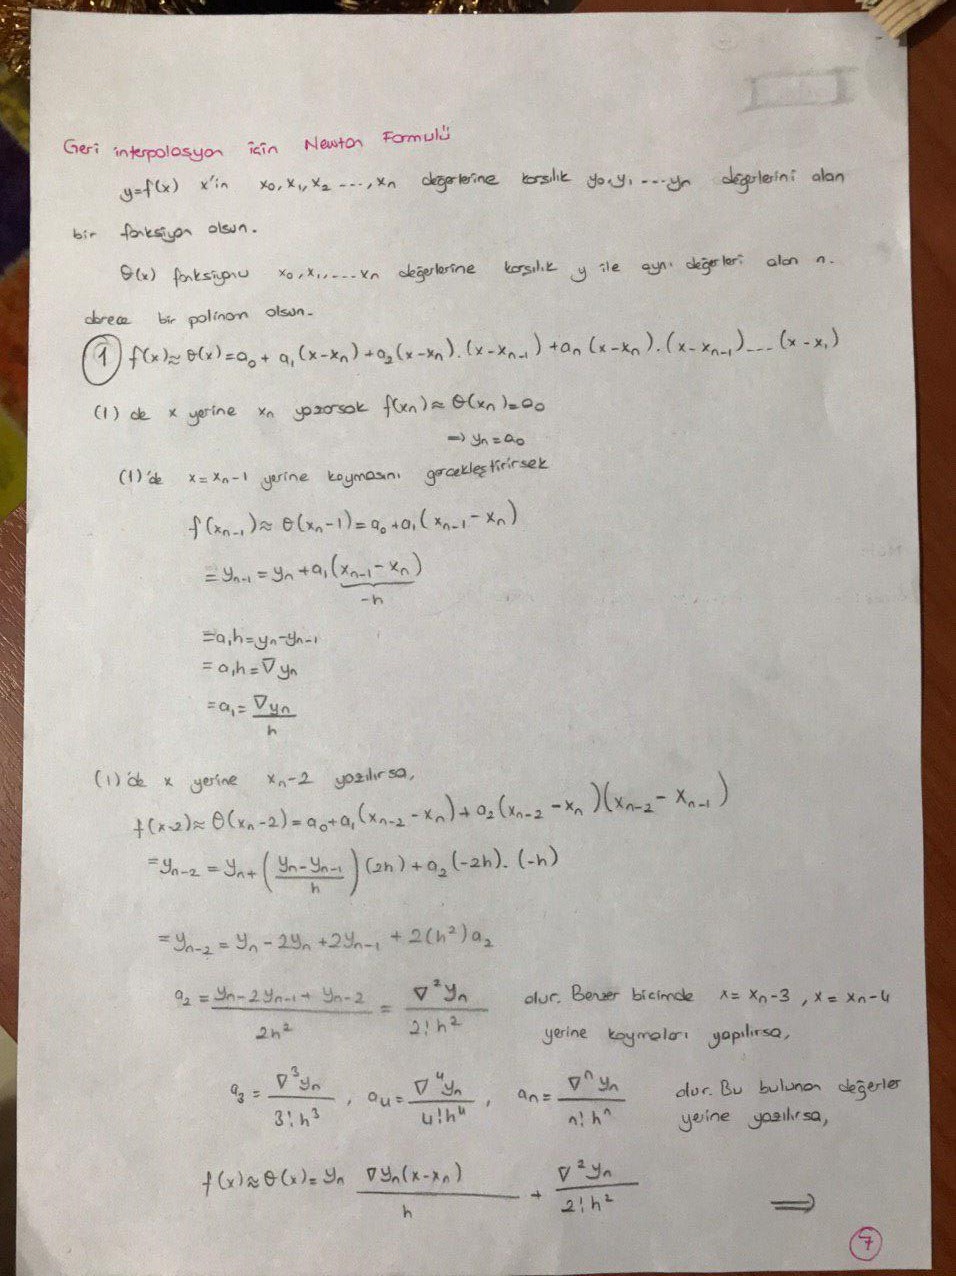 Geri interpolasyon için Newton Formülü
y=f(x) x'in x₀, x₁, x₂ ..., xₙ değerlerine karşılık y₀, y₁ ... yₙ değerlerini alan
bir fonksiyon olsun.
θ(x) fonksiyonu x₀, x₁, ... xₙ değerlerine karşılık y ile aynı değerleri alan n.
derece bir polinom olsun.
① f(x)≈θ(x)=a₀+a₁(x-xₙ)+a₂(x-xₙ).(x-xₙ₋₁)+aₙ(x-xₙ).(x-xₙ₋₁)...(x-x₁)
(1) de x yerine xₙ yazarsak f(xₙ)≈θ(xₙ)=a₀
⇒ yₙ=a₀
(1)'de x=xₙ-1 yerine koymasını gerçekleştirirsek
f(xₙ₋₁)≈θ(xₙ-1)=a₀+a₁(xₙ₋₁-xₙ)
=yₙ₋₁=yₙ+a₁(xₙ₋₁-xₙ)
-h
=a₁h=yₙ-yₙ₋₁
=a₁h=∇yₙ
=a₁=∇yₙ/h
(1)'de x yerine xₙ-2 yazılırsa,
f(x-2)≈θ(xₙ-2)=a₀+a₁(xₙ₋₂-xₙ)+a₂(xₙ₋₂-xₙ)(xₙ₋₂-xₙ₋₁)
=yₙ₋₂=yₙ+((yₙ-yₙ₋₁)/h)(2h)+a₂(-2h).(-h)
=yₙ₋₂=yₙ-2yₙ+2yₙ₋₁+2(h²)a₂
a₂=(yₙ-2yₙ₋₁+yₙ₋₂)/2h²=∇²yₙ/2!h² olur. Benzer biçimde x=xₙ-3, x=xₙ-4
yerine koymaları yapılırsa,
a₃=∇³yₙ/3!h³, a₄=∇⁴yₙ/4!h⁴, aₙ=∇ⁿyₙ/n!hⁿ olur. Bu bulunan değerler
yerine yazılırsa,
f(x)≈θ(x)=yₙ ∇yₙ(x-xₙ)/h + ∇²yₙ/2!h² ⇒
7